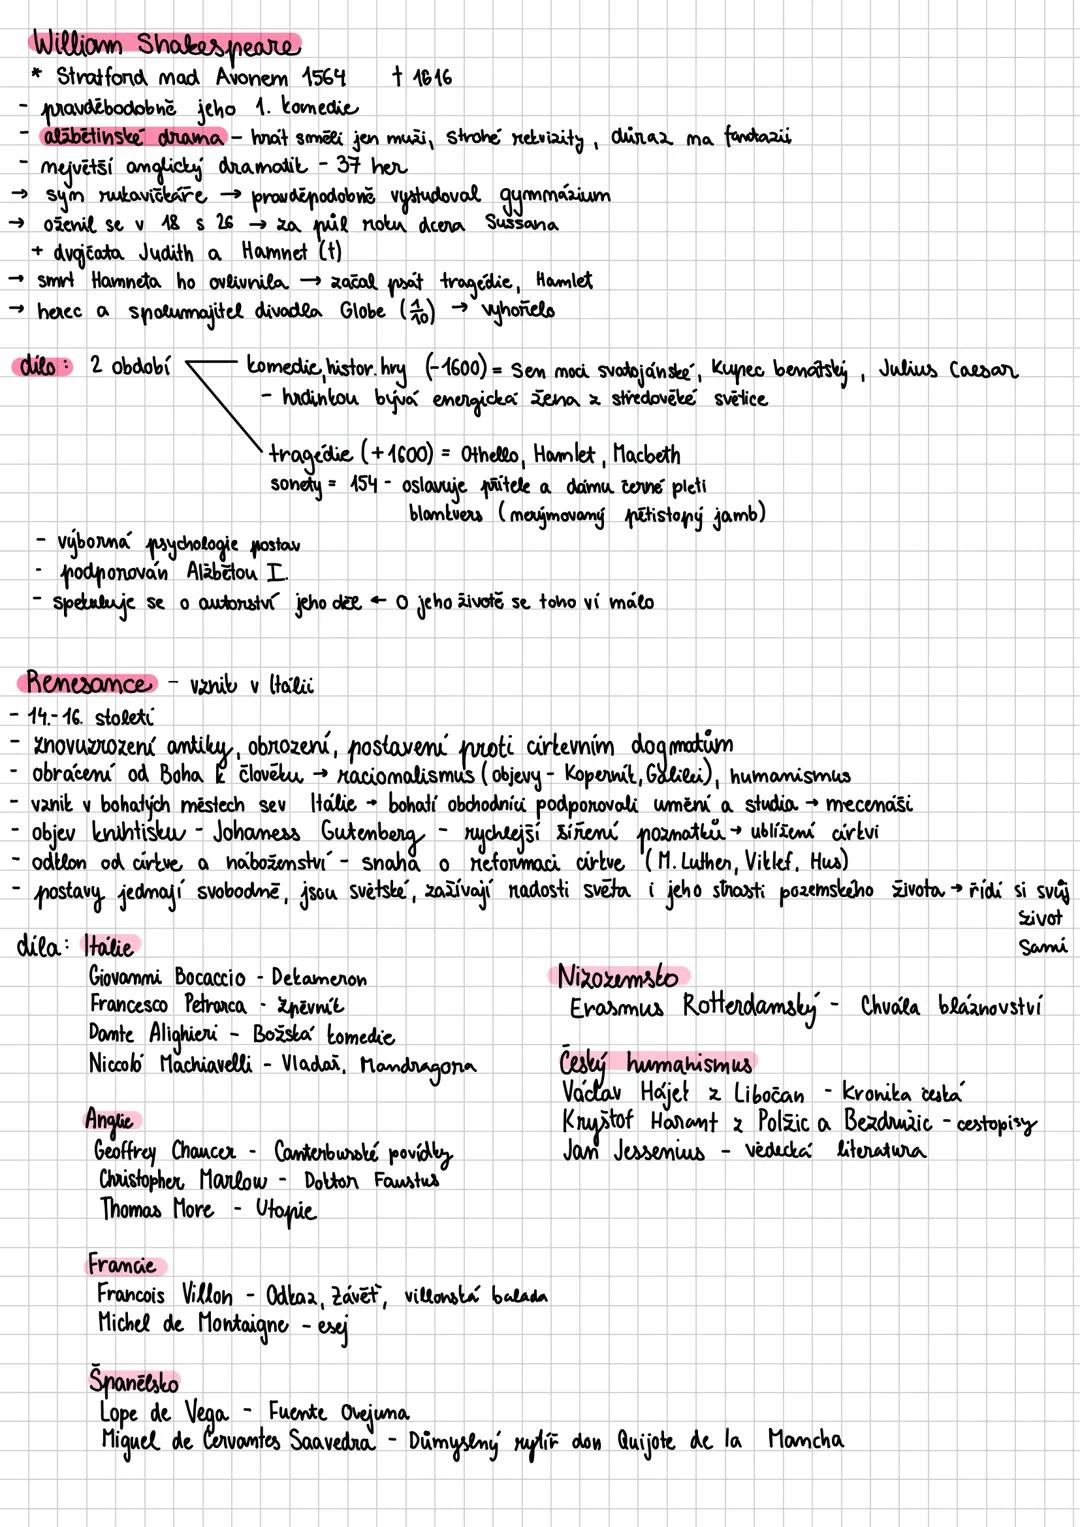 William Shakespeare
* Stratford nad Avonem 1564 † 1616
- pravděbodobně jeho 1. komedie
- alžbětinské drama - hrát směli jen muži, strohé rekvizity, důraz na fantazii
- největší anglický dramatik - 37 her
→ syn rukavičkáře → pravděpodobně vystudoval gymnázium
→ oženil se v 18 s 26 → za půl roku dcera Sussana
+ dvojčata Judith a Hamnet (†)
→ smrt Hamneta ho ovlivnila → začal psát tragédie, Hamlet
→ herec a spolumajitel divadla Globe (1/10) → vyhořelo
dílo: 2 období
komedie, histor. hry (-1600) = Sen noci svatojánské, Kupec benátský, Julius Caesar
- hrdinkou bývá energická žena z středověké světice
tragédie (+1600) = Othello, Hamlet, Macbeth
sonety = 154 - oslavuje přítele a dámu černé pleti
blankvers (nerýmovaný pětistopý jamb)
- výborná psychologie postav
- podporován Alžbětou I.
- spekuluje se o autorství jeho děl ← O jeho životě se toho ví málo
Renesance - vznik v Itálii
- 14.-16. století
- znovuzrození antiky, obrození, postavení proti církevním dogmatům
- obrácení od Boha k člověku → racionalismus (objevy - Koperník, Galilei), humanismus
- vznik v bohatých městech sev Itálie → bohatí obchodníci podporovali umění a studia → mecenáši
- objev knihtisku - Johaness Gutenberg - rychlejší šíření poznatků → ublížení církvi
- odklon od církve a náboženství - snaha o reformaci církve (M. Luther, Viklef, Hus)
- postavy jednají svobodně, jsou světské, zažívají radosti světa i jeho strasti pozemského života → řídí si svůj
život
sami
díla: Itálie
Giovanni Bocaccio - Dekameron
Francesco Petrarca - Zpěvník
Dante Alighieri - Božská komedie
Niccoló Machiavelli - Vladař, Mandragora
Nizozemsko
Erasmus Rotterdamský - Chvála bláznovství
Český humanismus
Václav Hájek z Libočan - Kronika česká
Kryštof Harant z Polžic a Bezdružic - cestopisy
Jan Jessenius - vědecká literatura
Anglie
Geoffrey Chaucer - Canterburské povídky
Christopher Marlow - Doktor Faustus
Thomas More - Utopie
Francie
Francois Villon - Odkaz, Závěť, villonská balada
Michel de Montaigne - esej
Španělsko
Lope de Vega - Fuente Ovejuna
Miguel de Cervantes Saavedra - Důmyslný rytíř don Quijote de la Mancha